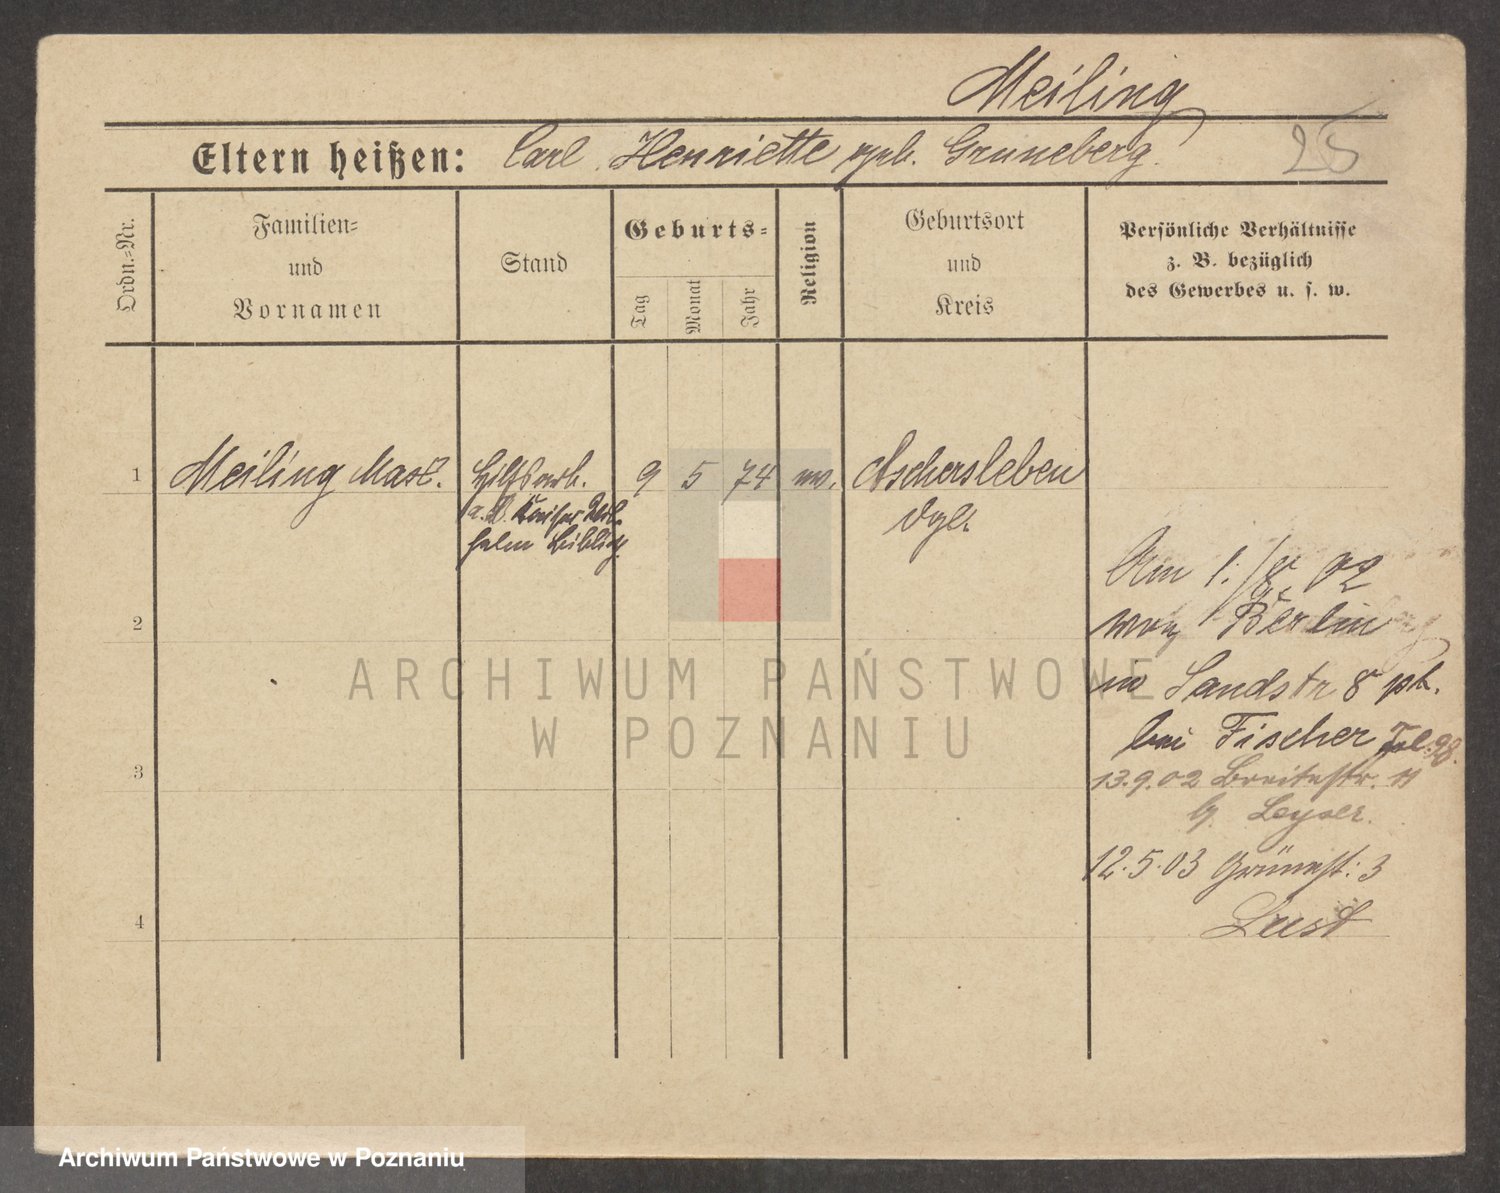 Meiling
Eltern heißen: Carl, Henriette geb. Gruneberg.
25
Ordn.-Nr.
Familien-
und
Vornamen
Stand
Geburts-
Tag
Monat
Jahr
Religion
Geburtsort
und
Kreis
Persönliche Verhältnisse
z. B. bezüglich
des Gewerbes u. s. w.
1 Meiling 9 5 74 Aschersleben
Hilfsarb.
a. d. Kaiser Wil-
helm Biblioth.
dgl.
2
3
4
Am 1./8. 02
Berlin
Sandstr 8 pt.
bei Fischer
13.9.02 Breitestr. 11
b. Leyser.
12.5.03 Grünest: 3
Lust
ARCHIWUM PAŃSTWOWE
W POZNANIU
Archiwum Państwowe w Poznaniu